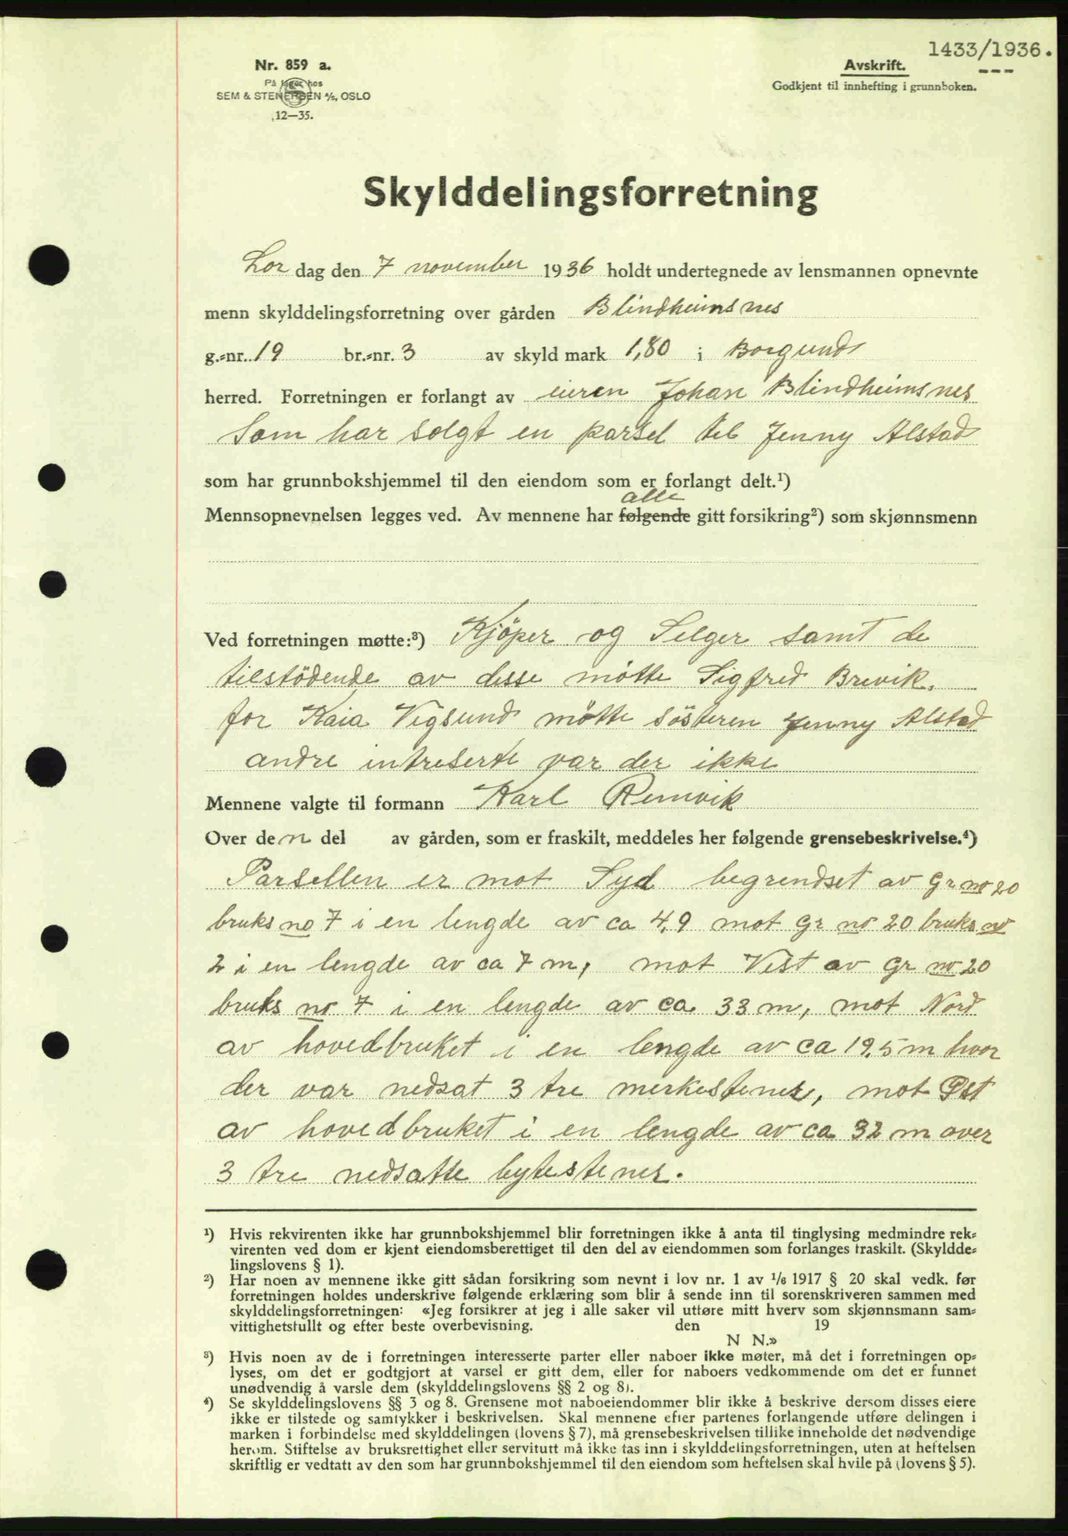 1433/1936.
Nr. 859 a.
På lager hos
SEM & STENERSEN A/S, OSLO
12—35.
Avskrift.
Godkjent til innhefting i grunnboken.
Skylddelingsforretning
Lør dag den 7 november 1936 holdt undertegnede av lensmannen opnevnte
menn skylddelingsforretning over gården Blindheimsnes
g.-nr. 19 br.-nr. 3 av skyld mark 1,80 i Borgund
herred. Forretningen er forlangt av eieren Johan Blindheimsnes
Som har solgt en parsel til Jenny Alstad
som har grunnbokshjemmel til den eiendom som er forlangt delt.¹)
alle
Mennsopnevnelsen legges ved. Av mennene har følgende gitt forsikring²) som skjønnsmenn
Ved forretningen møtte:³) Kjöper og Selger samt de
tilstödende av disse mötte Sigfred Brevik.
for Kaia Vegsund mötte sösteren Jenny Alstad
andre intreserte var der ikke
Mennene valgte til formann Karl Remvik
Over den del av gården, som er fraskilt, meddeles her følgende grensebeskrivelse.⁴)
Parsellen er mot Syd begrendset av Gr no 20
bruks no 7 i en lengde av ca 4,9 mot Gr no 20 bruks no
2 i en lengde av ca 7 m, mot Vest av Gr no 20
bruks no 7 i en lengde av ca 33 m, mot Nord
av hovedbruket i en lengde av ca 19,5 m hvor
der var nedsat 3 tre merkestener, mot Öst
av hovedbruket i en lengde av ca 32 m over
3 tre nedsatte bytestener.
¹) Hvis rekvirenten ikke har grunnbokshjemmel blir forretningen ikke å anta til tinglysing medmindre rek-
virenten ved dom er kjent eiendomsberettiget til den del av eiendommen som forlanges fraskilt. (Skyldde-
lingslovens § 1).
²) Har noen av mennene ikke gitt sådan forsikring som nevnt i lov nr. 1 av 1/6 1917 § 20 skal vedk. før
forretningen holdes underskrive følgende erklæring som blir å sende inn til sorenskriveren sammen med
skylddelingsforretningen: «Jeg forsikrer at jeg i alle saker vil utføre mitt hverv som skjønnsmann sam-
vittighetsfullt og efter beste overbevisning. den 19
N N.»
³) Hvis noen av de i forretningen interesserte parter eller naboer ikke møter, må det i forretningen op-
lyses, om det er godtgjort at varsel er gitt dem, eller for naboers vedkommende om det er funnet
unødvendig å varsle dem (skylddelingslovens §§ 2 og 8).
⁴) Se skylddelingslovens §§ 3 og 8. Grensene mot naboeiendommer blir ikke å beskrive dersom disses eiere
ikke er tilstede og samtykker i beskrivelsen. Skal mennene efter partenes forlangende utføre delingen i
marken i forbindelse med skylddelingen (lovens § 7), må grensebeskrivelsen tillike inneholde det nødvendige
herom. Stiftelse av bruksrettighet eller servitutt må ikke tas inn i skylddelingsforretningen, uten at heftelsen
skriftlig er vedtatt av den som har grunnbokshjemmel til den eiendom som heftelsen skal hvile på (lovens § 5).